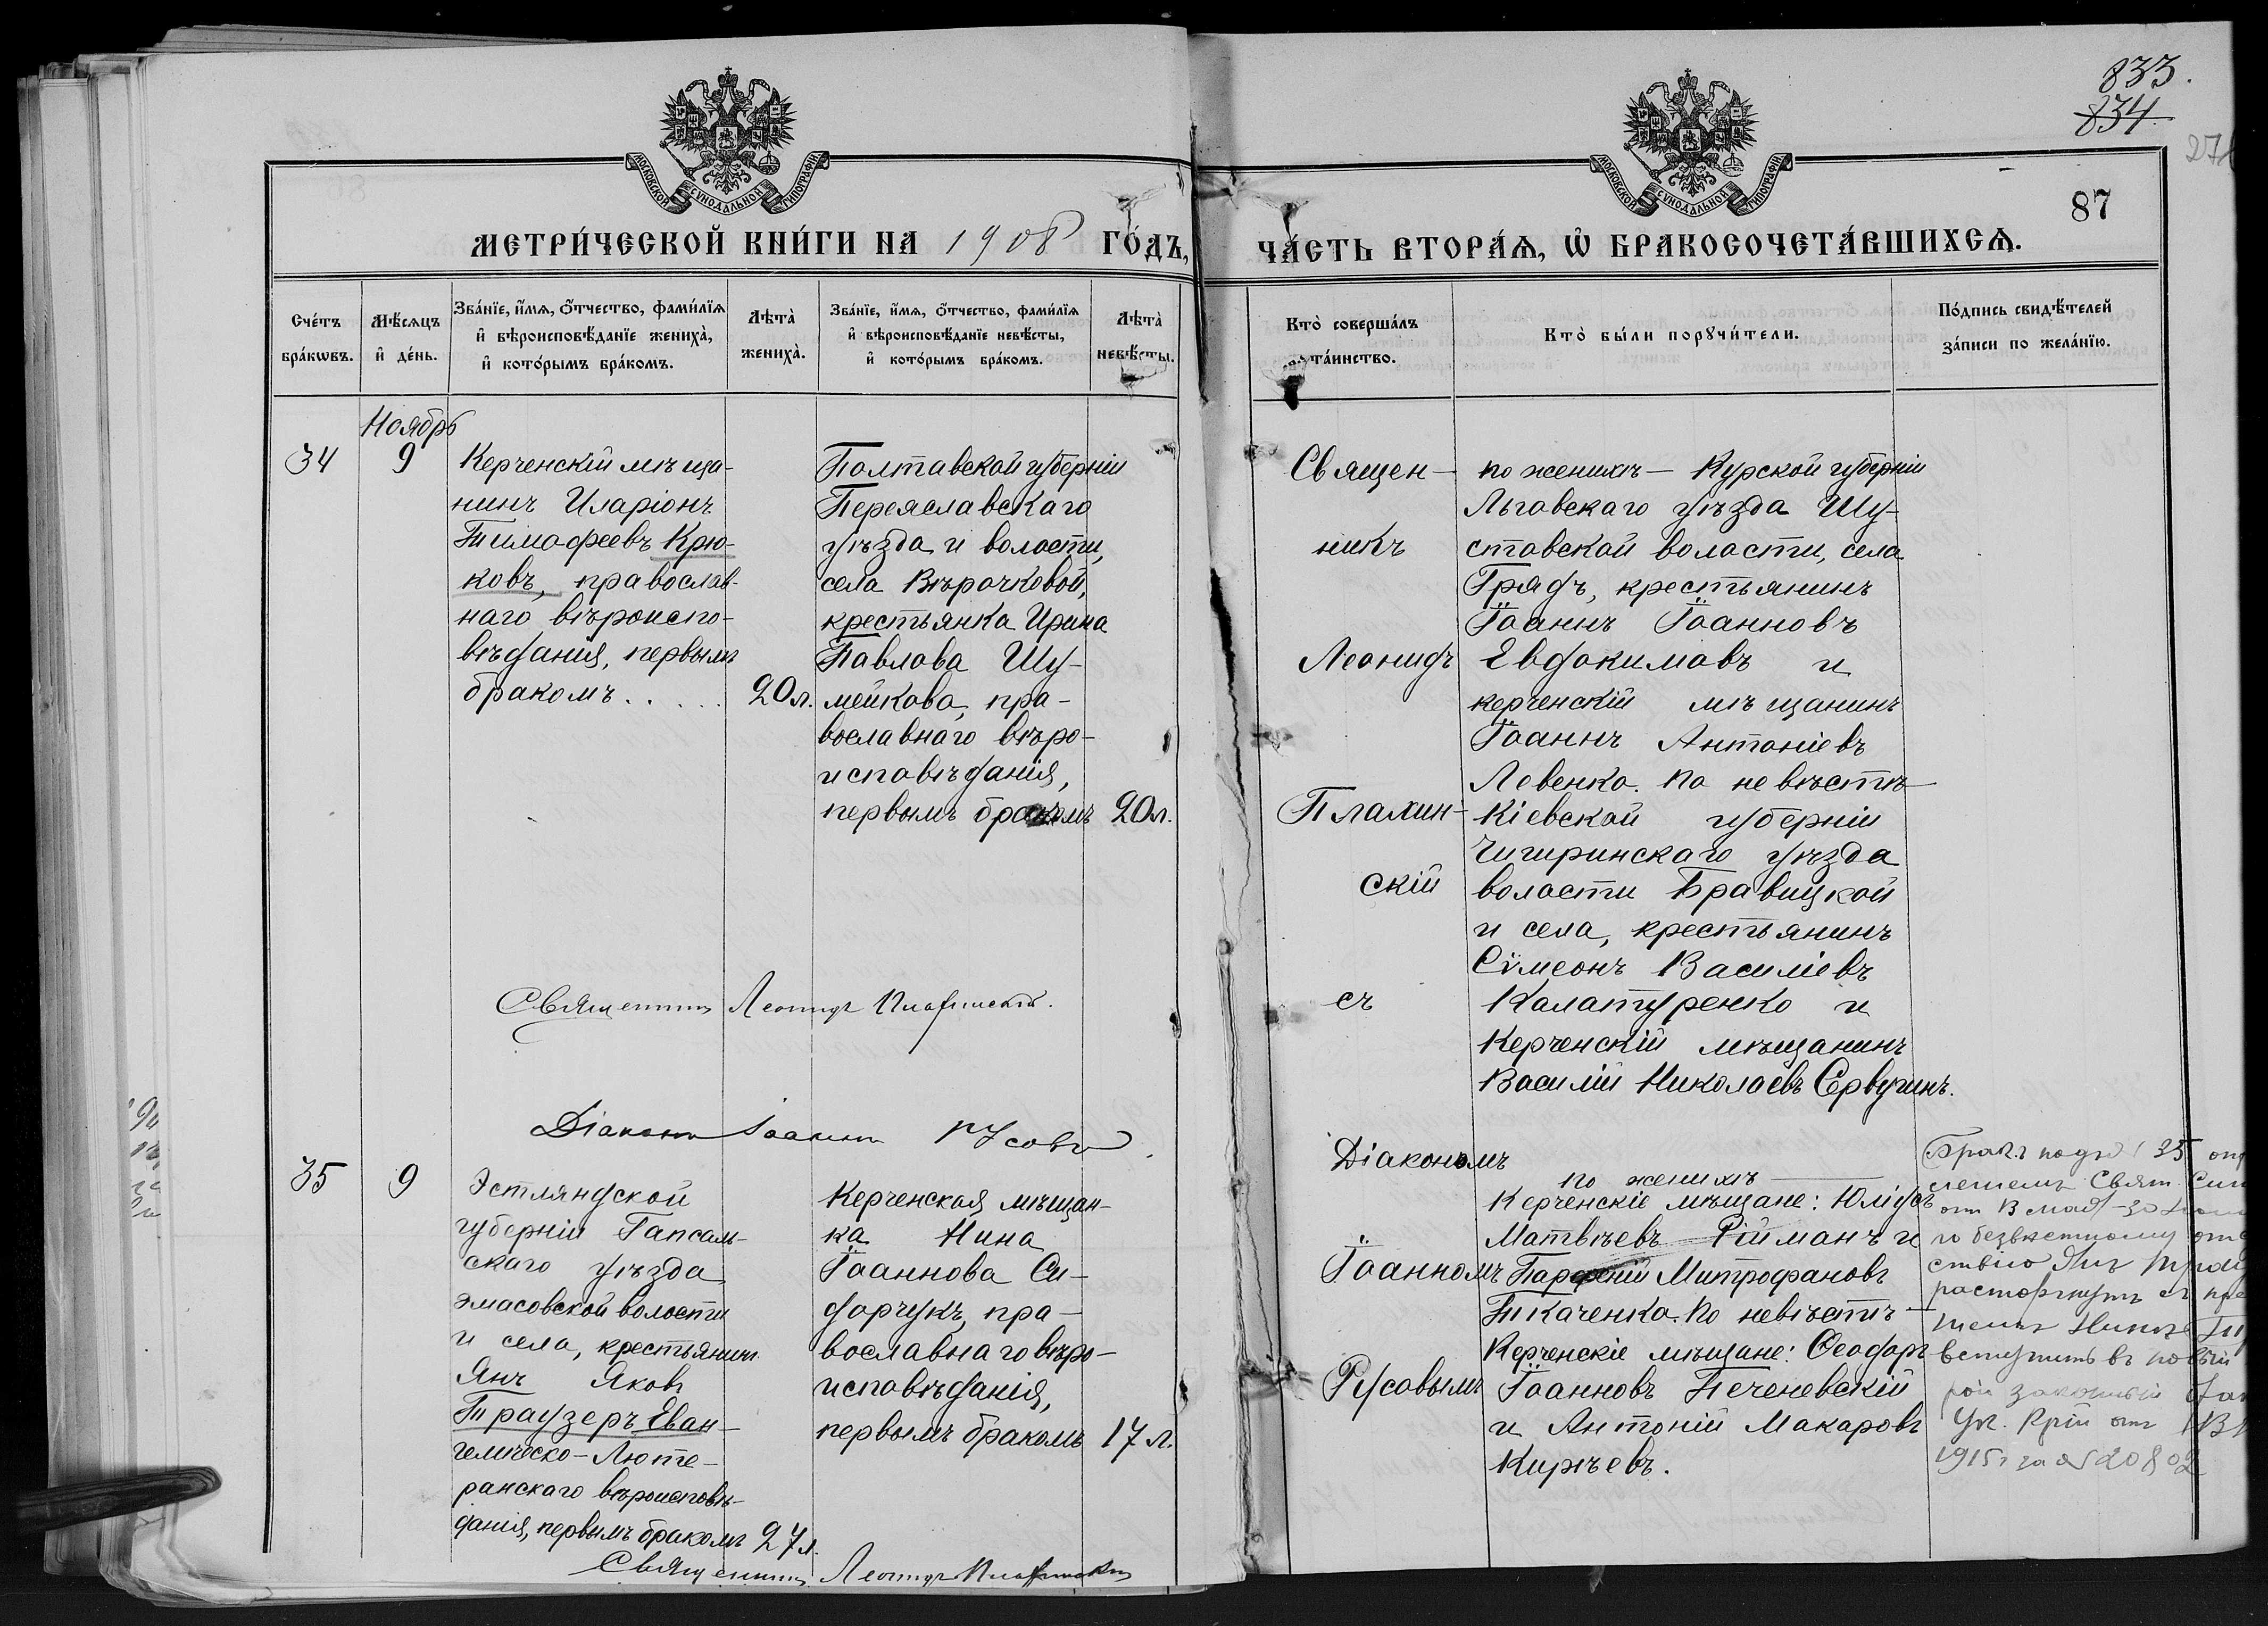 833.
834
87
МОСКОВСКОЙ СѴНОДАЛЬНОЙ ТИПОГРАФІИ
МОСКОВСКОЙ СѴНОДАЛЬНОЙ ТИПОГРАФІИ
МЕТРИ́ЧЕСКОЙ КНИ́ГИ НА 1908 ГО́ДЪ,
ЧА́СТЬ ВТОРА́Ѧ, Ѡ҆ БРАКОСОЧЕТА́ВШИХСѦ.
Сче́тъ
бра́кѡвъ.
Мѣ́сяцъ
и҆ де́нь.
Зва́нїе, и҆́мѧ, о҆́тчество, фами́лїѧ
и҆ вѣроисповѣ́данїе жениха̀,
и҆ кото́рымъ бра́комъ.
Лѣта̀
жениха̀.
Зва́нїе, и҆́мѧ, о҆́тчество, фами́лїѧ
и҆ вѣроисповѣ́данїе невѣ́сты,
и҆ кото́рымъ бра́комъ.
Лѣта̀
невѣ́сты.
Кто̀ соверша́лъ
та́инство.
Кто̀ бы́ли порꙋчи́тели.
По́дпись свидѣ́телей
за́писи по жела́нїю.
Ноябрь
34
9
Керченскій мѣща-
нинъ Иларіонъ
Тимофеевъ Крю-
ковъ, православ-
наго вѣроиспо-
вѣданія, первымъ
бракомъ . . . . .
20 л.
Полтавской губерніи
Переяславскаго
уѣзда и волости,
села Вѣрочковой,
крестьянка Ирина
Павлова Шу-
мейкова, пра-
вославнаго вѣро-
исповѣданія,
первымъ бракомъ
20 л.
Священникъ Леонидъ Плахинскій.
Діаконъ Іоаннъ Русовъ
Священ-
никъ
Леонидъ
Плахин-
скій
съ
Діакономъ
Іоанномъ
Русовымъ
по женихѣ – Курской губерніи
Льговскаго уѣзда Шу-
ставской волости, села
Грядъ, крестьянинъ
Іоаннъ Іоанновъ
Евдокимовъ и
керченскій мѣщанинъ
Іоаннъ Антоніевъ
Левенко. По невѣстѣ
Кіевской губерніи
Чигиринскаго уѣзда
волости Бравицкой
и села, крестьянинъ
Сѵмеонъ Василіевъ
Калатуренко и
Керченскій мѣщанинъ
Василій Николаевъ Сервучинъ.
35
9
Эстляндской
губерніи Гапсаль-
скаго уѣзда
Эмасовской волости
и села, крестьянинъ
Янъ Яковъ
Траузеръ, Еван-
гелическо-Люте-
ранскаго вѣроисповѣ-
данія, первымъ бракомъ
27 л.
Керченская мѣщан-
ка Нина
Іоаннова Си-
дорчукъ, пра-
вославнаго вѣро-
исповѣданія,
первымъ бракомъ
17 л.
Священникъ Леонидъ Плахинскій
по женихѣ
Керченскіе мѣщане: Юлій
Матвѣевъ Рійманъ и
Парфеній Митрофановъ
Ткаченко. По невѣстѣ –
Керченскіе мѣщане: Ѳеодоръ
Іоанновъ Печеневскій
и Антоній Макаровъ
Кирѣевъ.
Бракъ подъ 35
Свят. Син
от В мая
го безвѣстному
ствію Янъ
расторгнутъ съ
Нинѣ
вступить въ новый
законный
Ук. от
1915 г за № 20802